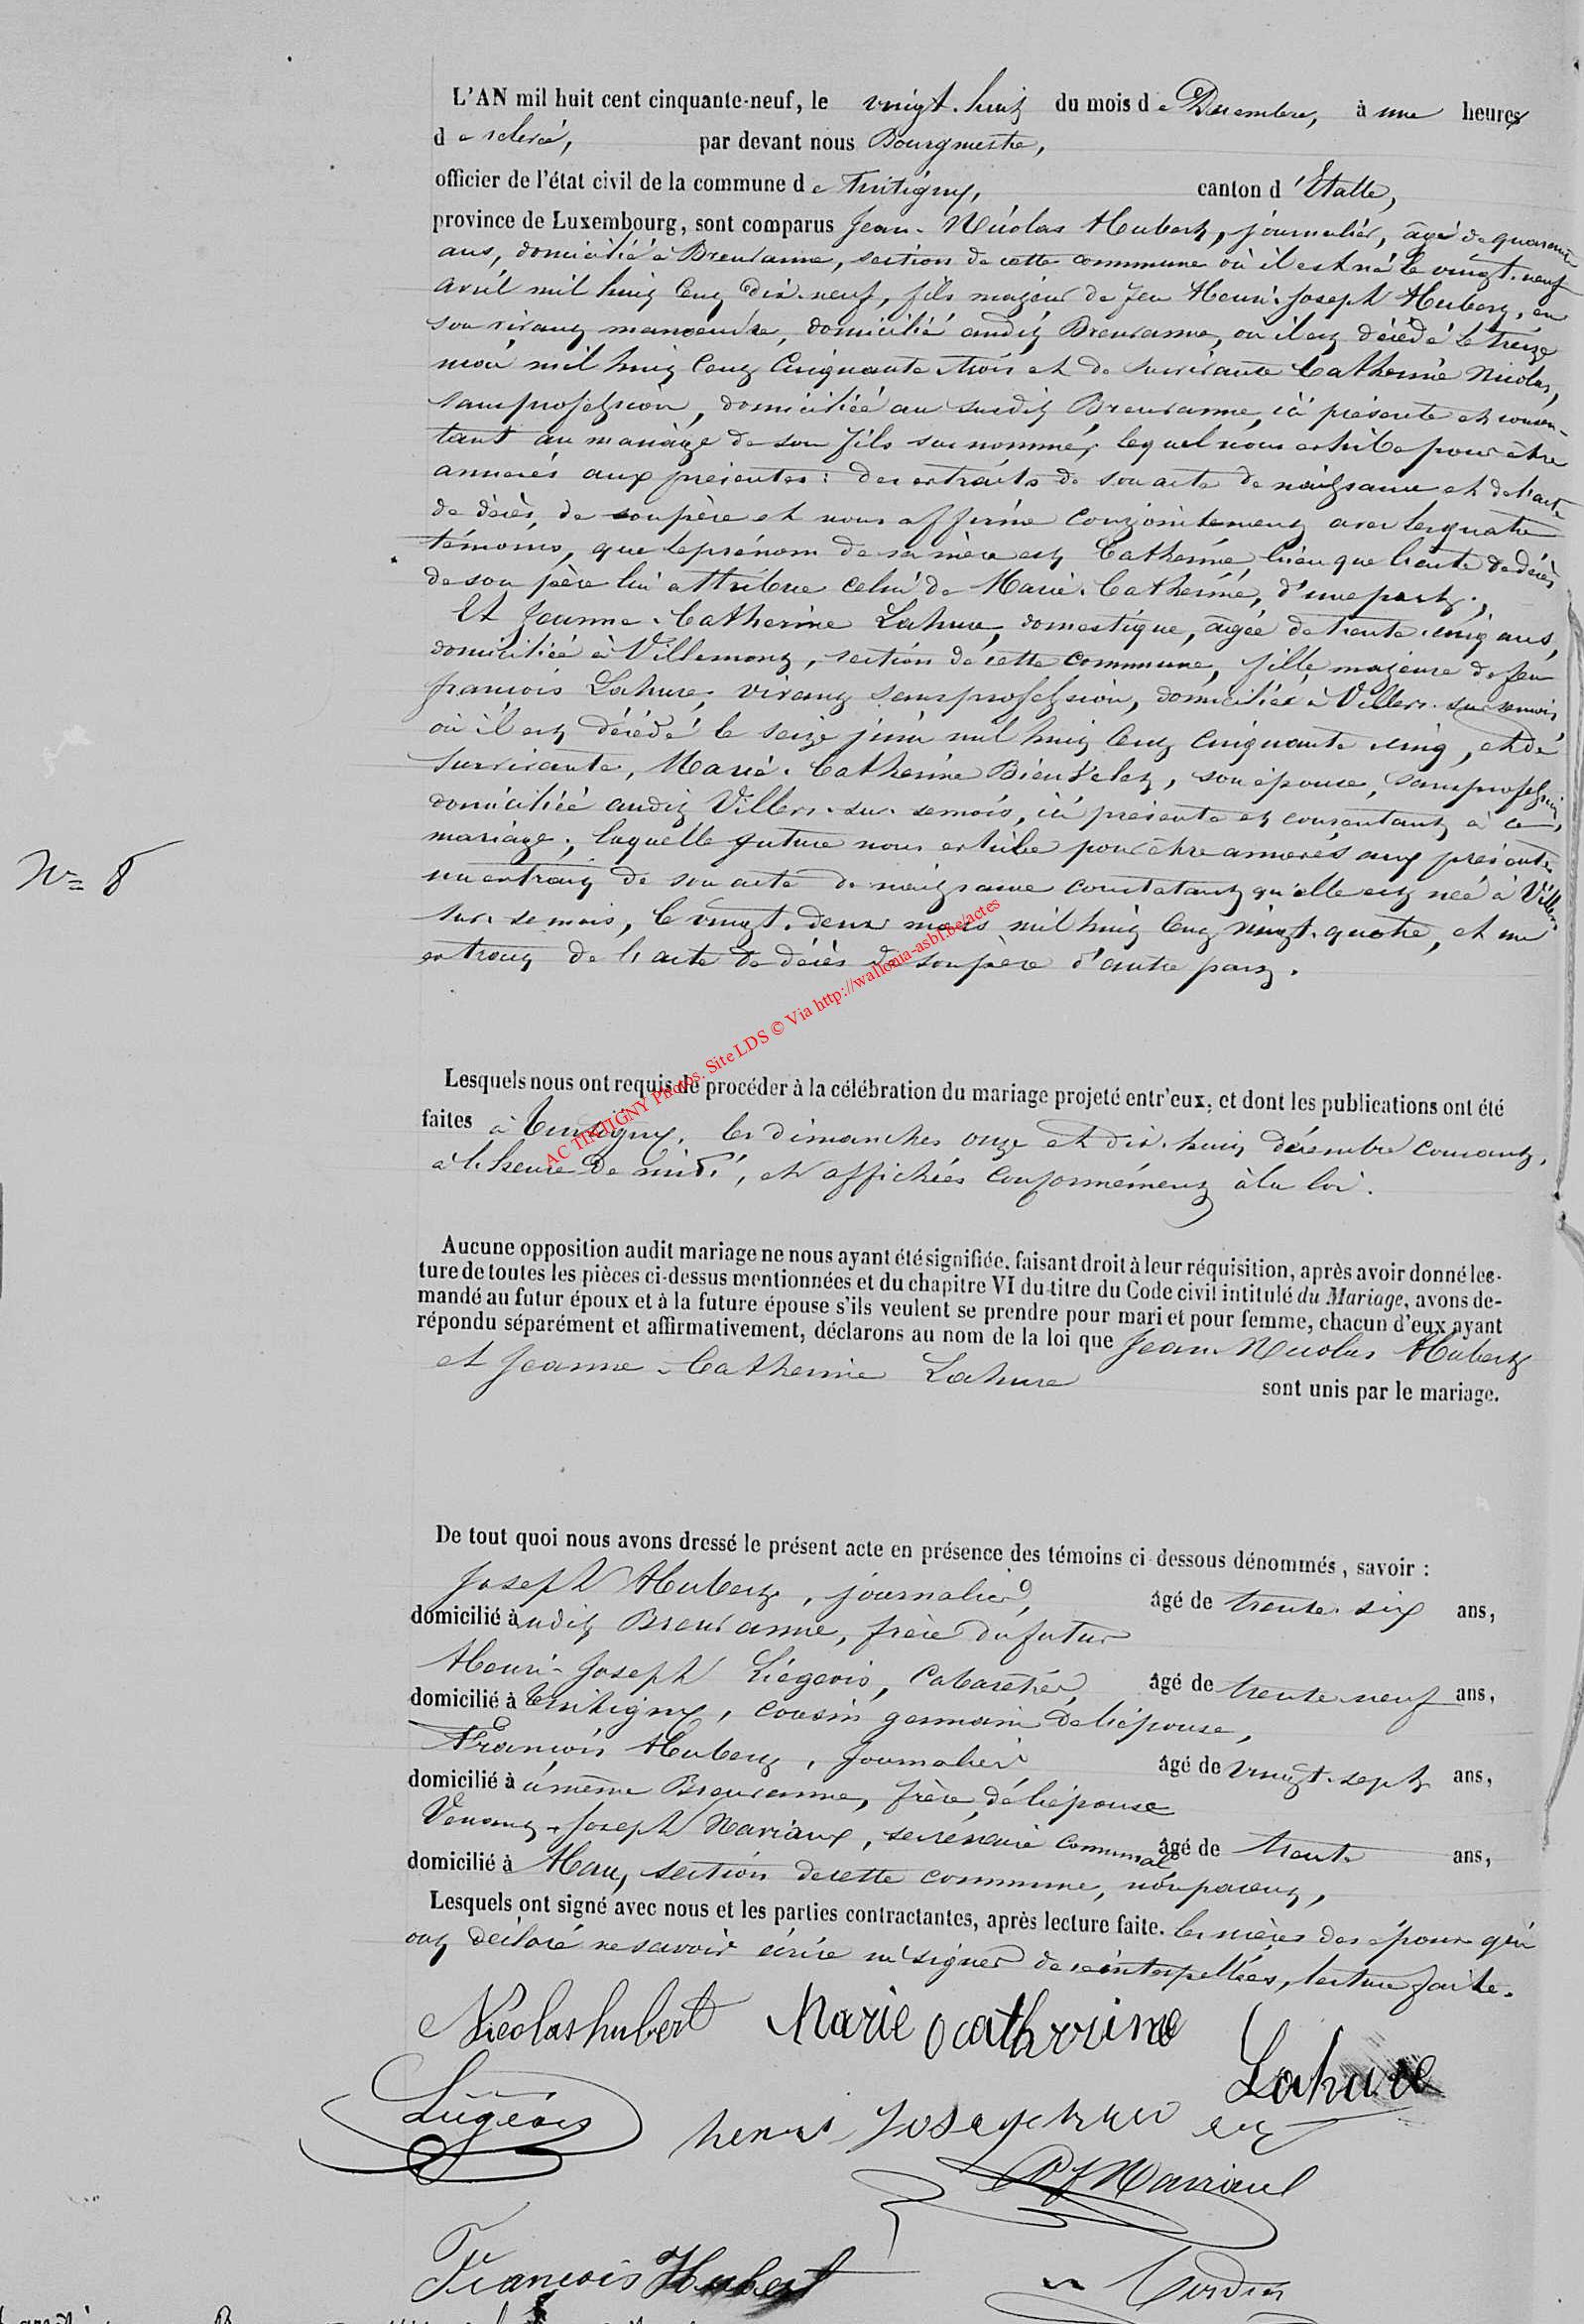 L'AN mil huit cent cinquante-neuf, le vingt-huit du mois de Décembre, à une heures
de relevé, par devant nous Bourgmestre,
officier de l'état civil de la commune de Tintigny, canton d'Etalle,
province de Luxembourg, sont comparus Jean-Nicolas Hubert, journalier, âgé de quarante
ans, domicilié à Breuvanne, section de cette commune où il est né le vingt-neuf
avril mil huit cent dix-neuf, fils majeur de feu Henri-Joseph Hubert, en
son vivant manœuvre, domicilié audit Breuvanne, où il est décédé le treize
mai mil huit cent cinquante trois et de survivante Catherine Nicolas,
sans profession, domiciliée au susdit Breuvanne, ici présente et consen-
tant au mariage de son fils susnommé, lequel nous exhibe pour être
annexés aux présentes : des extraits de son acte de naissance et de l'acte
de décès de son père et nous affirme conjointement avec les quatre
témoins, que le prénom de sa mère est Catherine bien que l'acte de décès
de son père lui attribue celui de Marie-Catherine, d'une part ;
Et Jeanne-Catherine Lahure, domestique, âgée de trente-cinq ans,
domiciliée à Villemont, section de cette commune, fille majeure de feu
françois Lahure, vivant sans profession, domicilié à Villers-sur-semois
où il est décédé le seize juin mil huit cent cinquante cinq, et de
survivante, Marie-Catherine son épouse, sans profession,
domiciliée audit Villers-sur-semois, ici présente et consentant à ce
mariage ; laquelle future nous exhibe pour être annexés aux présentes
un extrait de son acte de naissance constatant qu'elle est née à Villers
sur-semois, le vingt-deux mars mil huit cent vingt-quatre, et un
extrait de l'acte de décès de son père d'autre part.
N° 8
AC TINTIGNY Photos. Site LDS © Via http://wallonia-asbl.be/actes
Lesquels nous ont requis de procéder à la célébration du mariage projeté entr'eux, et dont les publications ont été
faites à Tintigny, les dimanches onze et dix-huit décembre courant,
à l'heure de midi, et affichées conformément à la loi.
Aucune opposition audit mariage ne nous ayant été signifiée, faisant droit à leur réquisition, après avoir donné lec-
ture de toutes les pièces ci-dessus mentionnées et du chapitre VI du titre du Code civil intitulé du Mariage, avons de-
mandé au futur époux et à la future épouse s'ils veulent se prendre pour mari et pour femme, chacun d'eux ayant
répondu séparément et affirmativement, déclarons au nom de la loi que Jean-Nicolas Hubert
et Jeanne-Catherine Lahure sont unis par le mariage.
De tout quoi nous avons dressé le présent acte en présence des témoins ci-dessous dénommés, savoir :
Joseph Hubert, journalier, âgé de trente-six ans,
domicilié audit Breuvanne, frère du futur
Henri-Joseph Liégeois, Cabaretier, âgé de trente neuf ans,
domicilié à Tintigny, cousin germain de l'épouse,
François Hubert, journalier âgé de vingt-sept ans,
domicilié à même Breuvanne, frère de l'épouse
Venant-Joseph Naviaux, secrétaire communal, âgé de trente ans,
domicilié à Han, section de cette commune, non parent,
Lesquels ont signé avec nous et les parties contractantes, après lecture faite. les mères des époux qui
ont déclaré ne savoir écrire ni signer de ce interpellées, lecture faite.
Nicolas hubert Marie catherine
Lahure
Liégeois henri Joseph
Naviaux
François Hubert